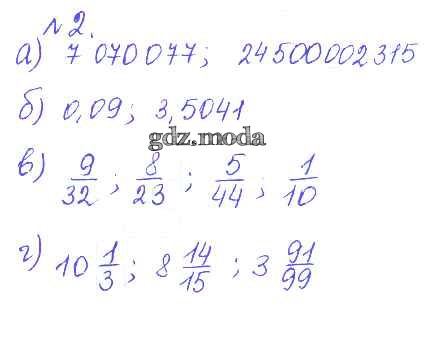 № 2.
а) 7 070 077; 24500002315
б) 0,09; 3,5041
gdz.moda
в) 9/32; 8/23; 5/44; 1/10
г) 10 1/3; 8 14/15; 3 91/99